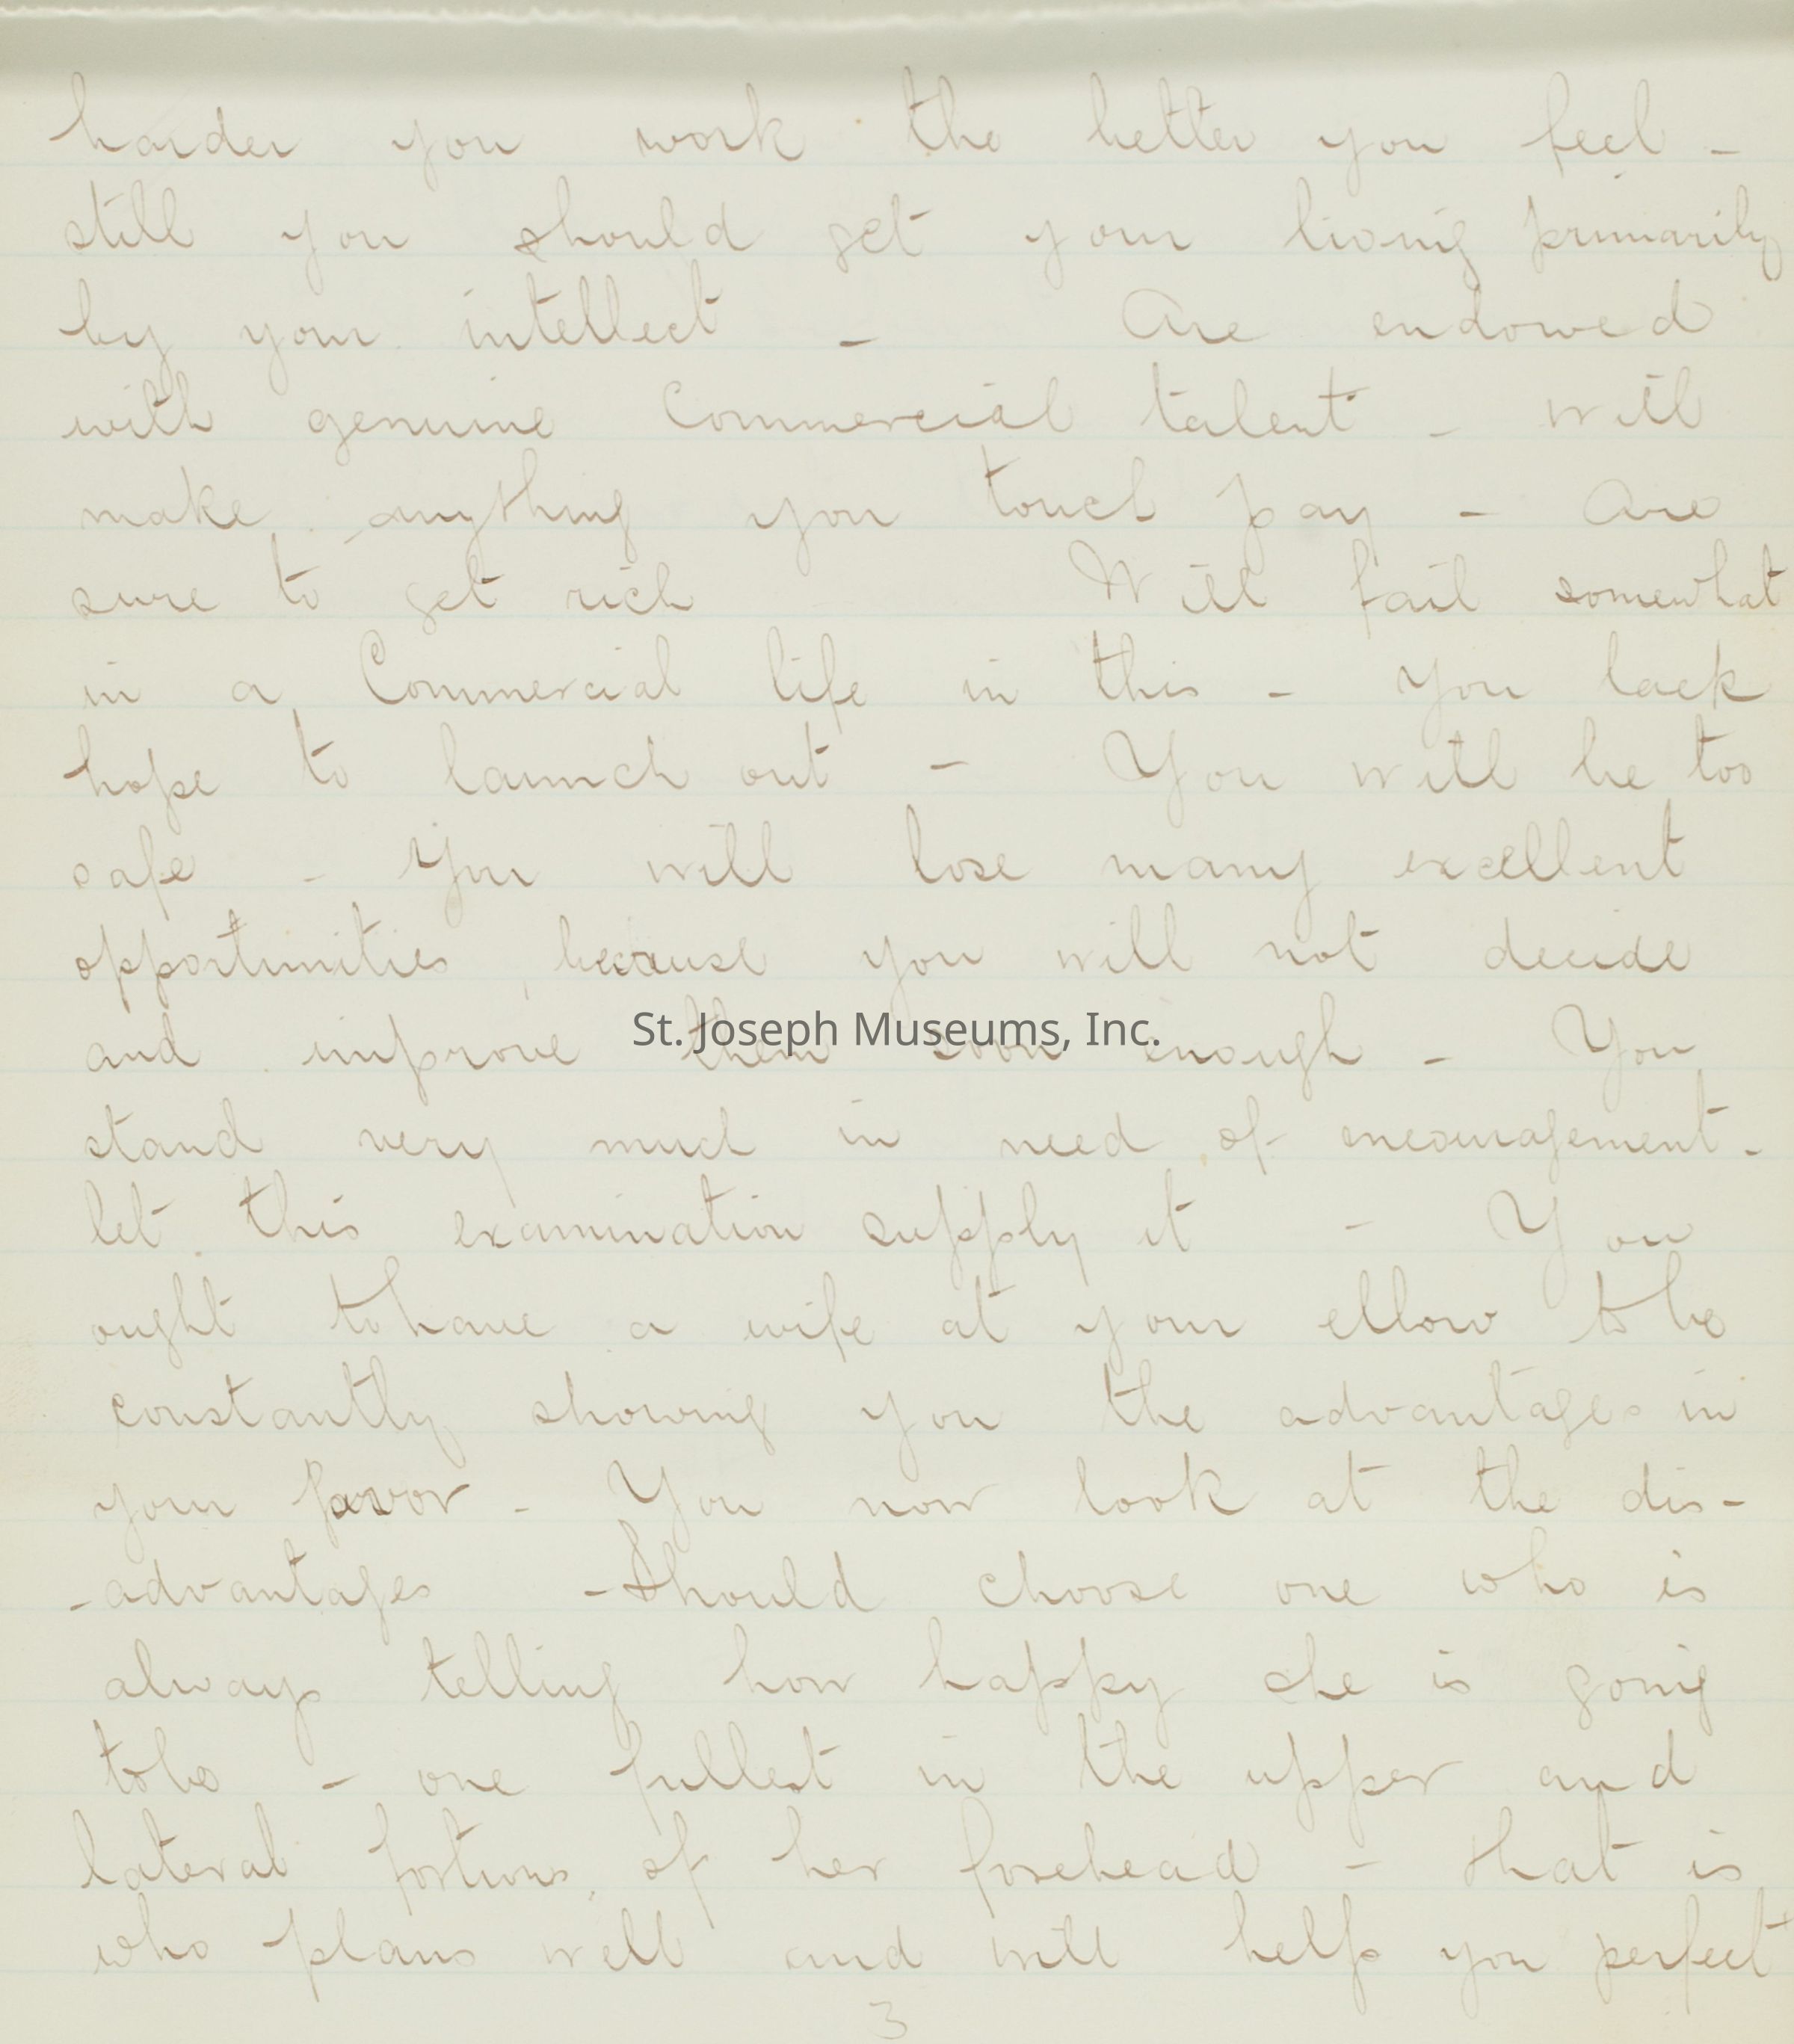 harder you work the better you feel -
still you should get your living primarily
by your intellect - Are endowed
with genuine Commercial talent - will
make anything you touch pay - Are
sure to get rich Will fail somewhat
in a Commercial life in this - you lack
hope to launch out - You will be too
safe - You will lose many excellent
opportunities because you will not decide
and improve them soon enough - You
stand very much in need of encouragement -
let this examination supply it - You
ought to have a wife at your ellow to be
constantly showing you the advantages in
your favor - You now look at the dis-
-advantages - Should choose one who is
always telling how happy she is going
to be - one fullest in the upper and
lateral portions of her forehead - that is
who plans well and will help you perfect
3
St. Joseph Museums, Inc.